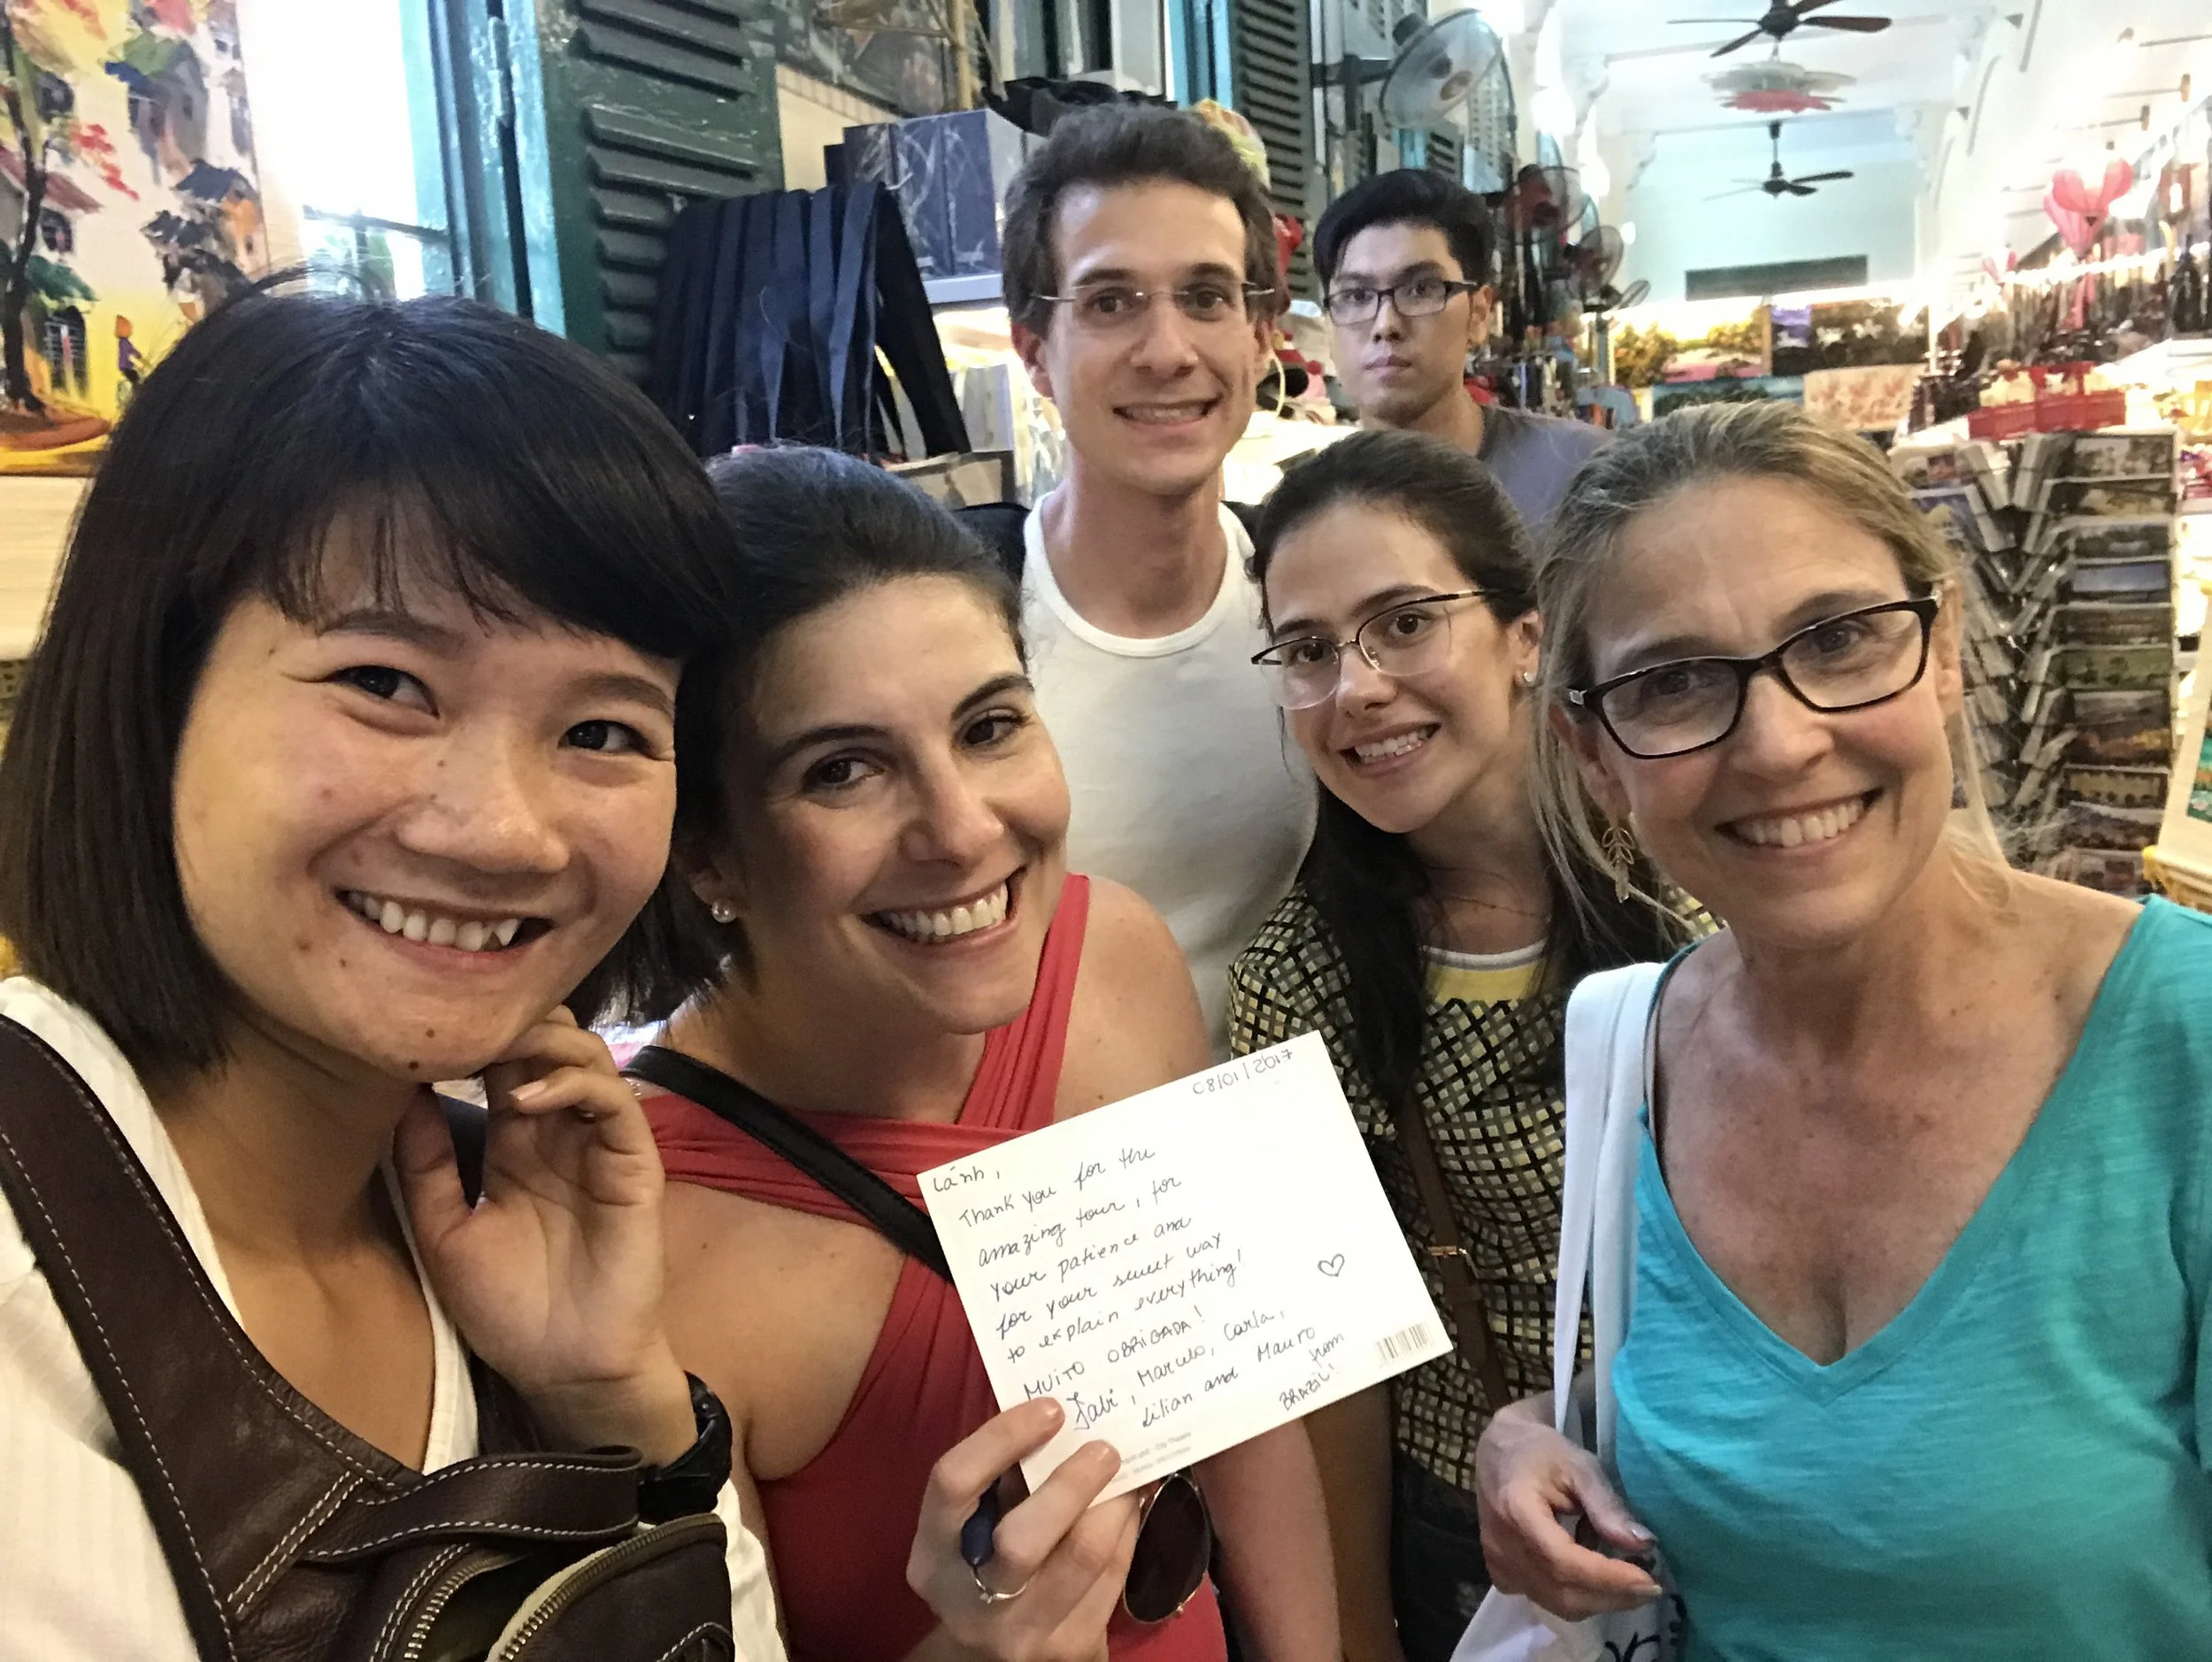 08/01/2017
Lánh,
Thank you for the
amazing tour, for
your patience and
for your sweet way
to explain everything!
MUITO OBRIGADA!
Fabi, Marcelo, Carla,
Lilian and Mauro
from
BRAZIL!
City Theatre